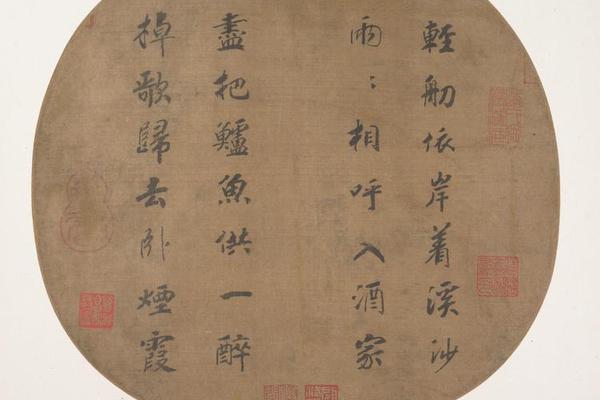 輕舠依岸着溪沙
雨〻相呼入酒家
盡把鱸魚供一醉
棹歌歸去卧煙霞